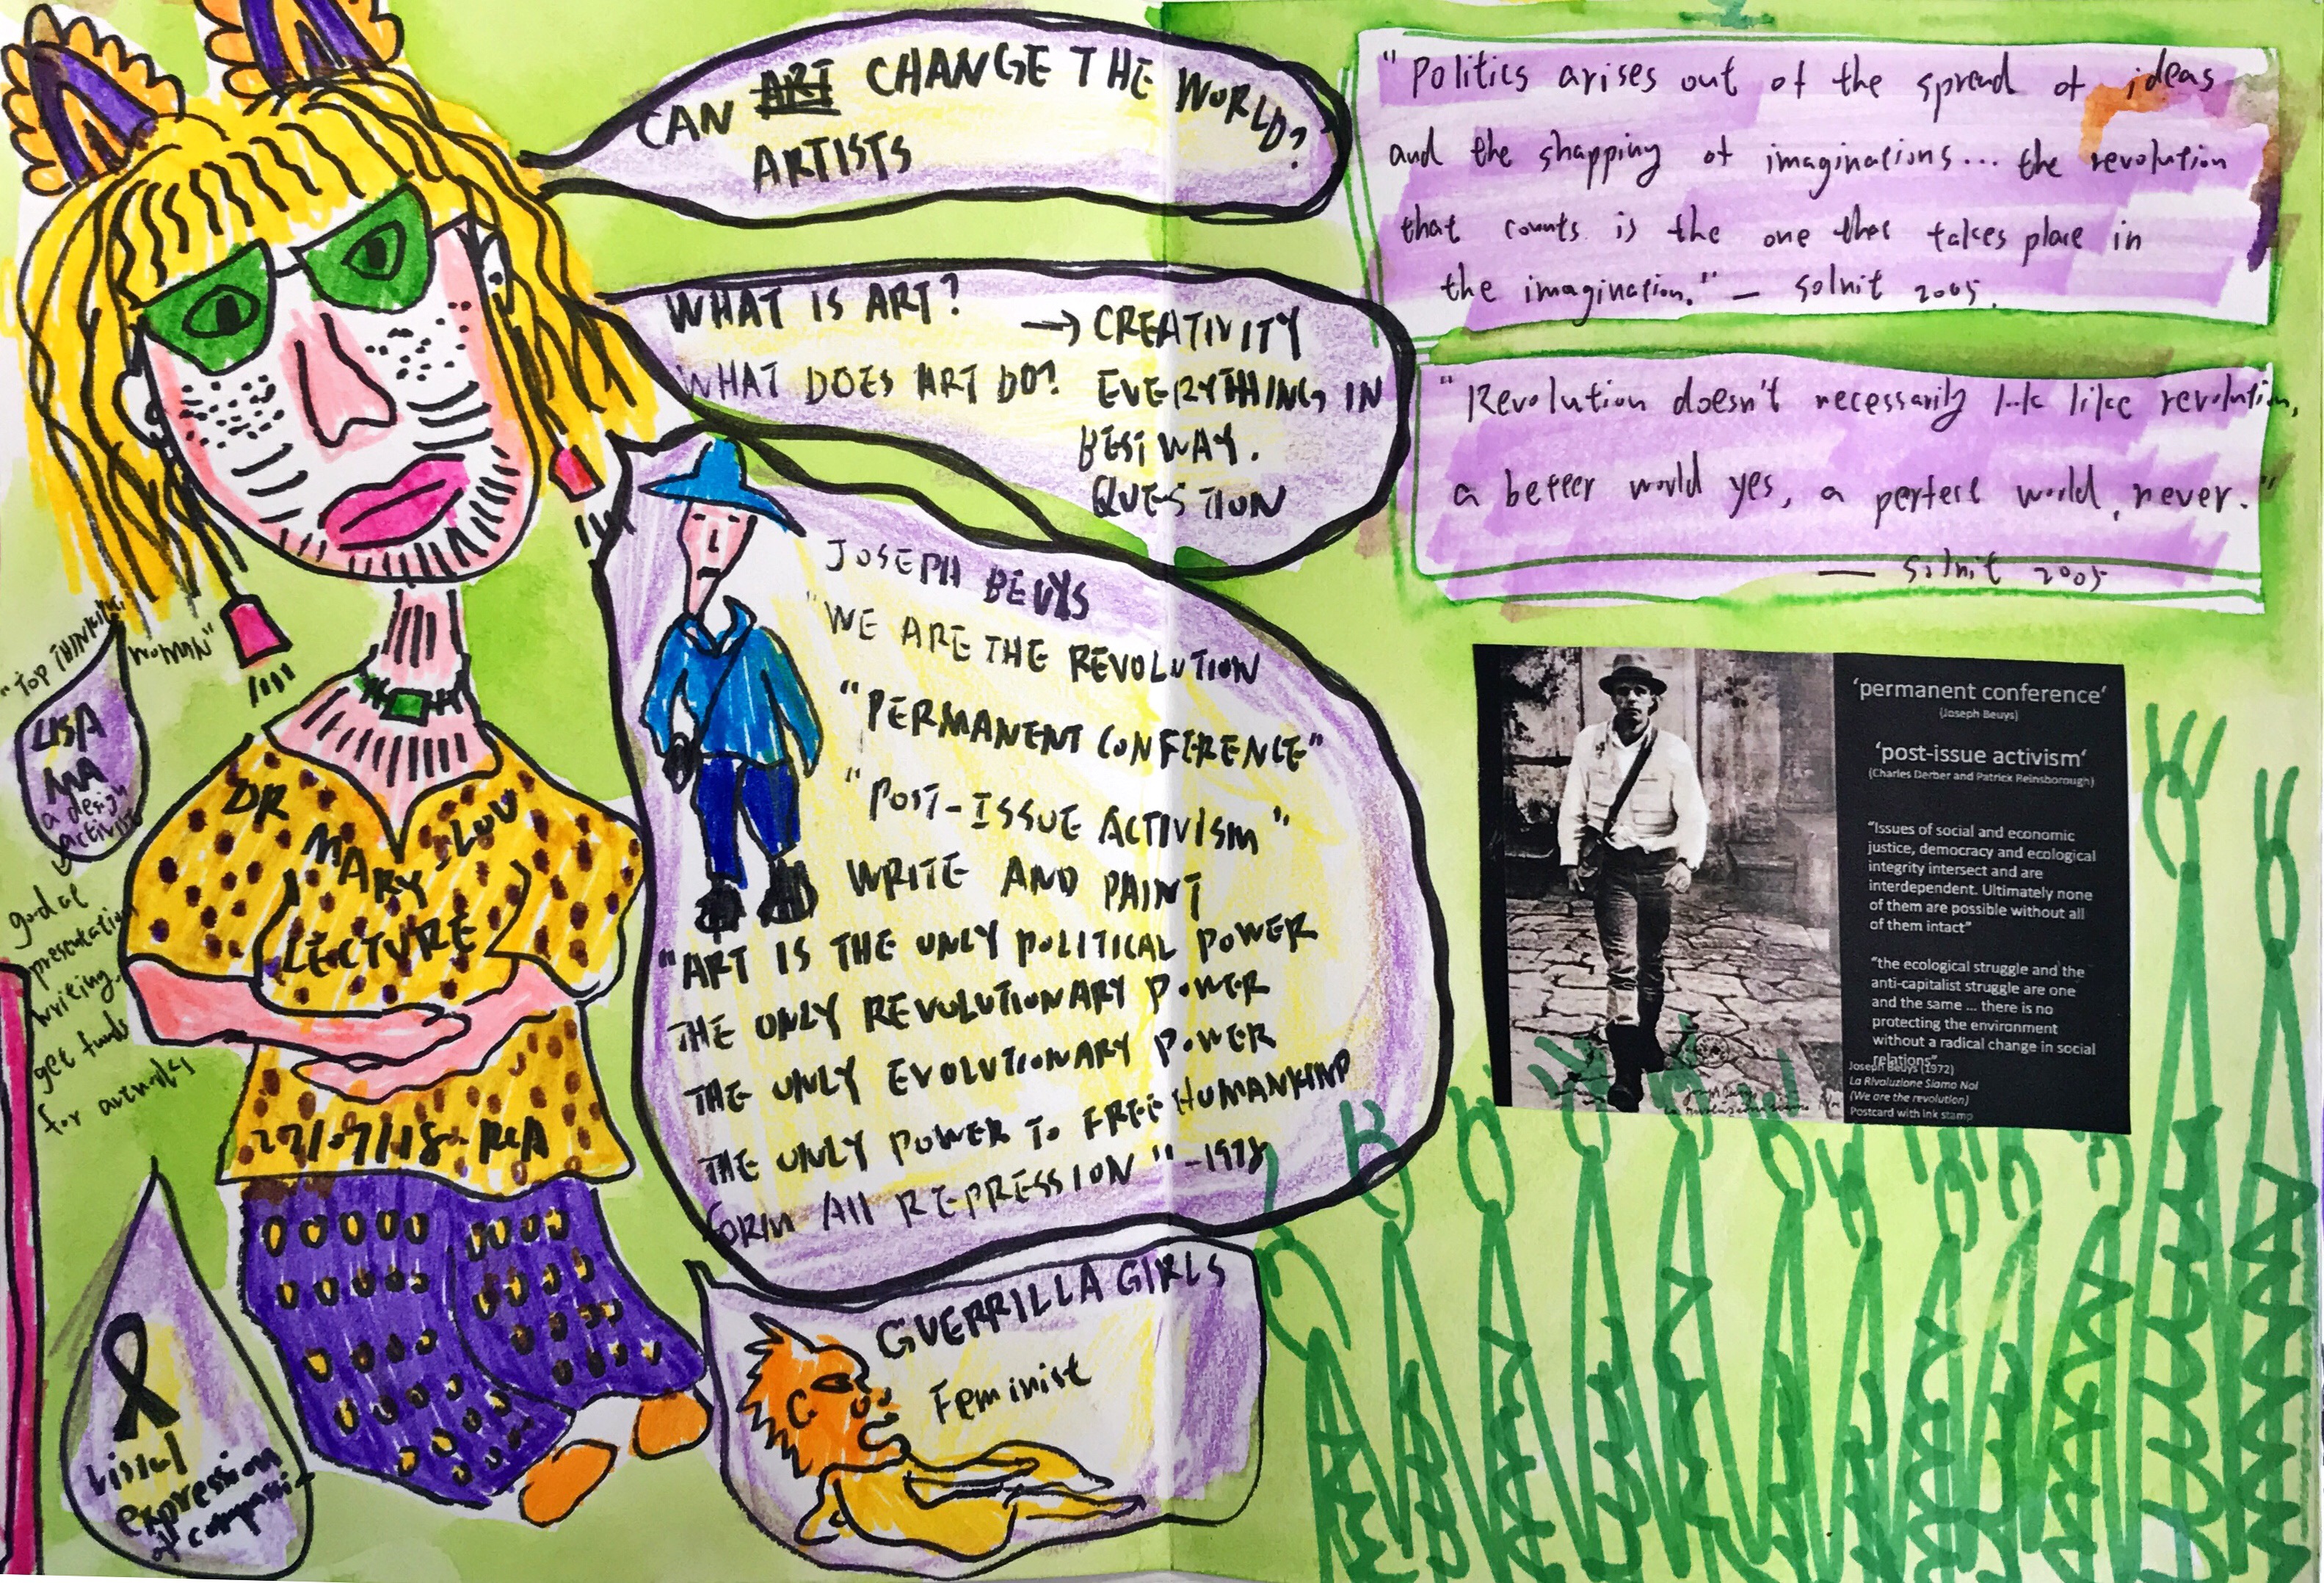 CAN ART CHANGE THE WORLD?
ARTISTS
WHAT IS ART?
WHAT DOES ART DO?
→ CREATIVITY
EVERYTHING IN
BEST WAY.
QUESTION
JOSEPH BEUYS
"WE ARE THE REVOLUTION
"PERMANENT CONFERENCE"
"POST-ISSUE ACTIVISM"
WRITE AND PAINT
"ART IS THE ONLY POLITICAL POWER
THE ONLY REVOLUTIONARY POWER
THE ONLY EVOLUTIONARY POWER
THE ONLY POWER TO FREE HUMANKIND
FORM All REPRESSION" -1978
GUERRILLA GIRLS
Feminist
"TOP THINKING
WOMAN"
LISA
MA
a design
activist
good at
presentation
writing.
get funds
for artworks
DR
MARY, LOU
LECTURE
27/07/18 RCA
visual
expression
of compassi-
"Politics arises out of the spread of ideas
and the shapping of imaginations... the revolution
that counts is the one that takes place in
the imagination." — Solnit 2005.
"Revolution doesn't necessarily look like revolution,
a better world yes, a perfect world, never."
— Solnit 2005
'permanent conference'
(Joseph Beuys)
'post-issue activism'
(Charles Derber and Patrick Reinsborough)
"Issues of social and economic
justice, democracy and ecological
integrity intersect and are
interdependent. Ultimately none
of them are possible without all
of them intact"
"the ecological struggle and the
anti-capitalist struggle are one
and the same ... there is no
protecting the environment
without a radical change in social
relations"
Joseph Beuys (1972)
La Rivoluzione Siamo Noi
(We are the revolution)
Postcard with ink stamp